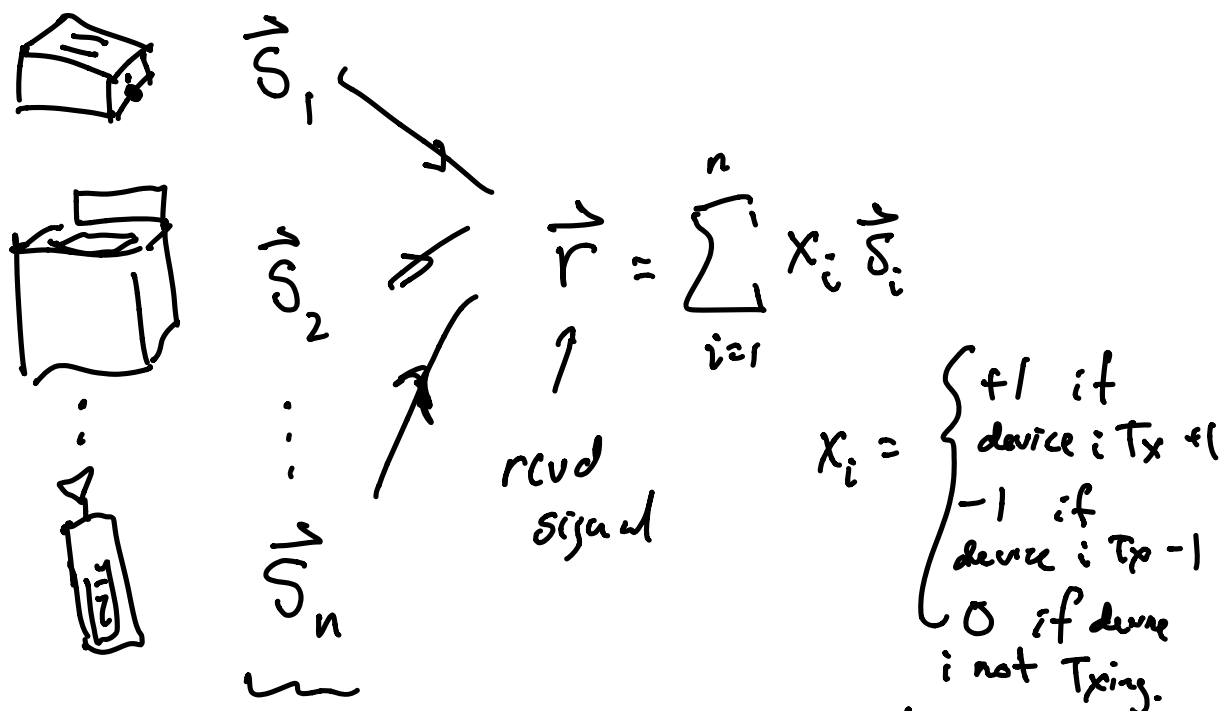 S⃗₁
S⃗₂
⋮
S⃗ₙ
r⃗ = ∑ᵢ₌₁ⁿ xᵢ s⃗ᵢ
rcvd
signal
xᵢ = { +1 if
device i Tx +1
-1 if
device i Tx -1
0 if device
i not Txing.